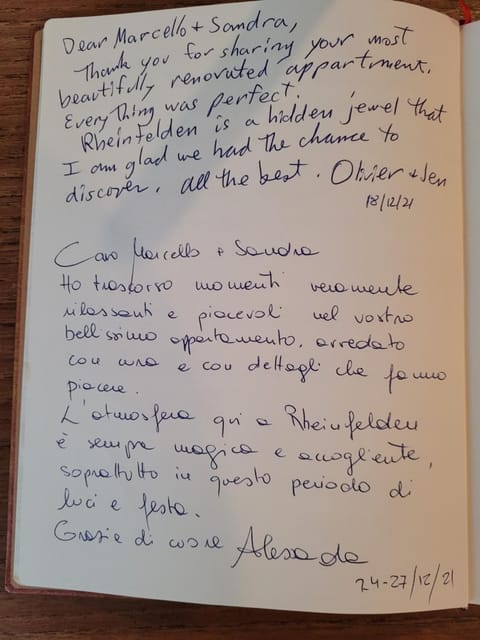 Dear Marcello + Sandra,
Thank you for sharing your most
beautifully renovated appartment.
Everything was perfect.
Rheinfelden is a hidden jewel that
I am glad we had the chance to
discover. all the best. Olivier + Jen
18/12/21
Caro Marcello + Sandra
Ho trascorso momenti veramente
rilassanti e piacevoli nel vostro
bellissimo appartamento, arredato
con cura e con dettagli che fanno
piacere.
L'atmosfera qui a Rheinfelden
è sempre magica e accogliente,
soprattutto in questo periodo di
luci e festa.
Grazie di cuore
24-27/12/21